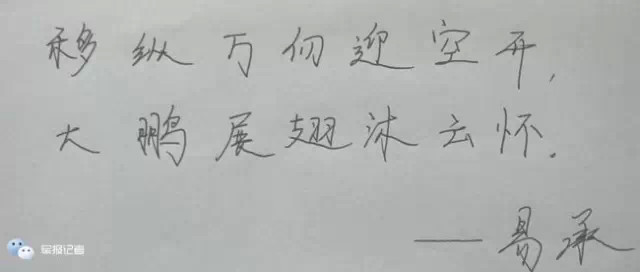 移纵万仞迎空开,
大鹏展翅沐云怀.
——易承
军报记者